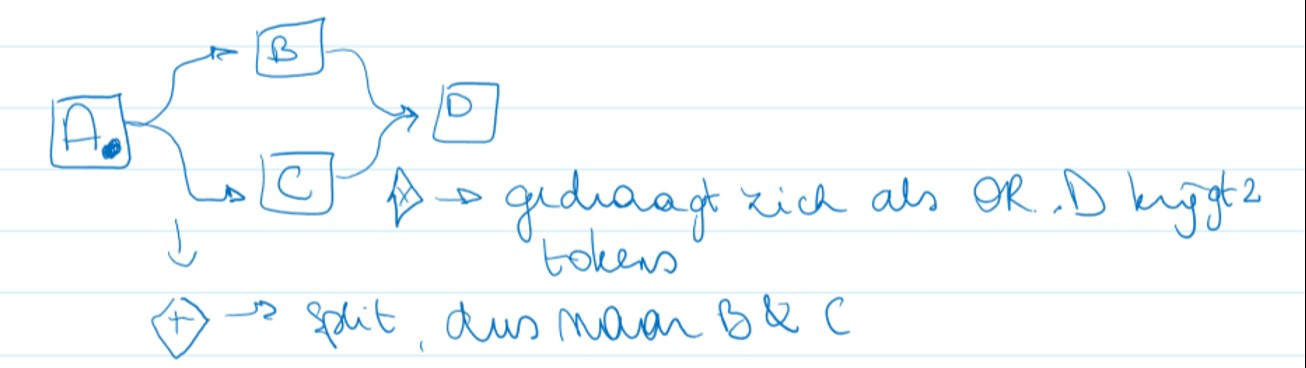 B
A
D
C
X → gedraagt zich als OR. D krijgt 2
tokens
+ → split, dus naar B & C